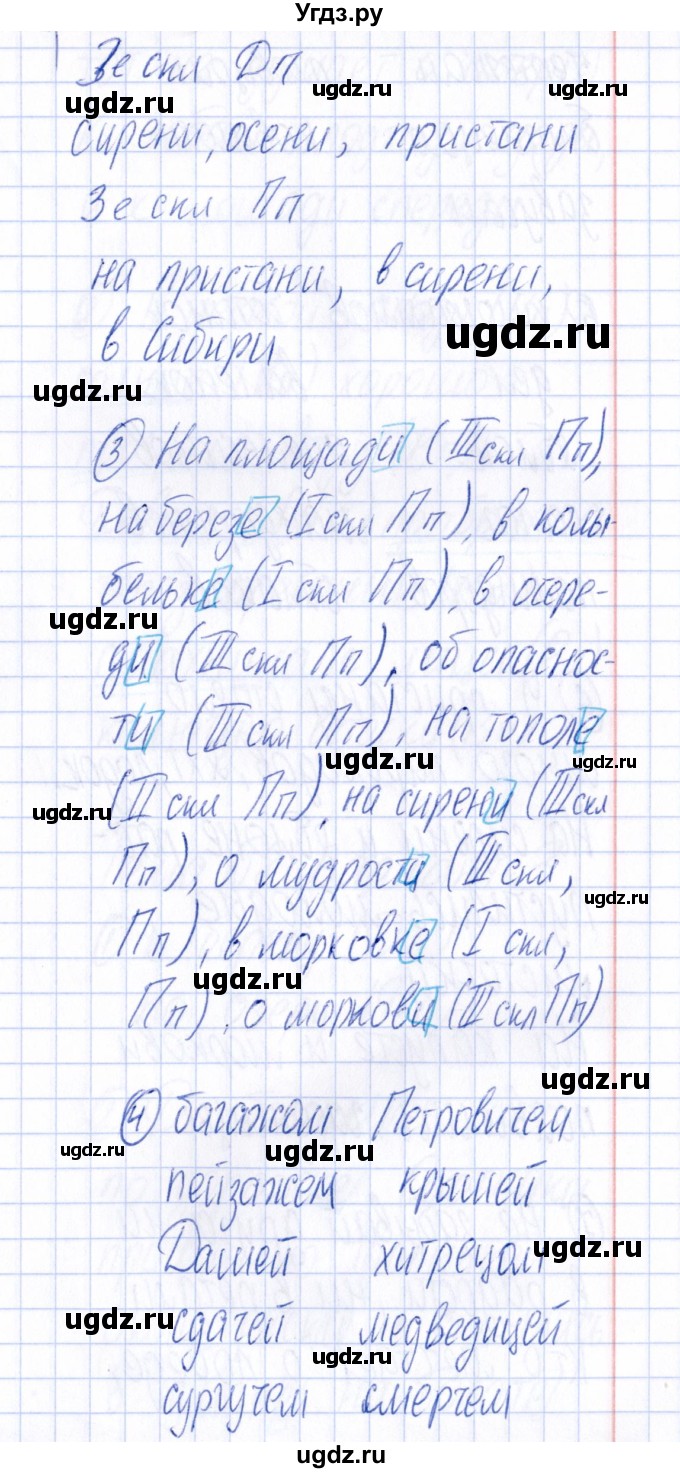 Угдз.ру
3е скл Дп
ugdz.ru ugdz.ru ugdz.ru
сирени, осени, пристани
3е скл Пп
на пристани, в сирени,
ugdz.ru
в Сибири
ugdz.ru
③ На площади (III скл Пп),
на березе (I скл Пп), в колы-
бельке (I скл Пп), в очере-
ugdz.ru
ди (III скл Пп), об опаснос-
ти (III скл Пп), на тополе
ugdz.ru ugdz.ru
(II скл Пп), на сирени (III скл
ugdz.ru
Пп), о мудрости (III скл,
ugdz.ru
Пп), в морковке (I скл,
ugdz.ru
Пп), о моркови (III скл Пп)
ugdz.ru
④ багажом Петровичем
ugdz.ru ugdz.ru
пейзажем крышей
Дашей хитрецом
ugdz.ru
ugdz.ru
сдачей медведицей
ugdz.ru
сургучем смерчем
ugdz.ru